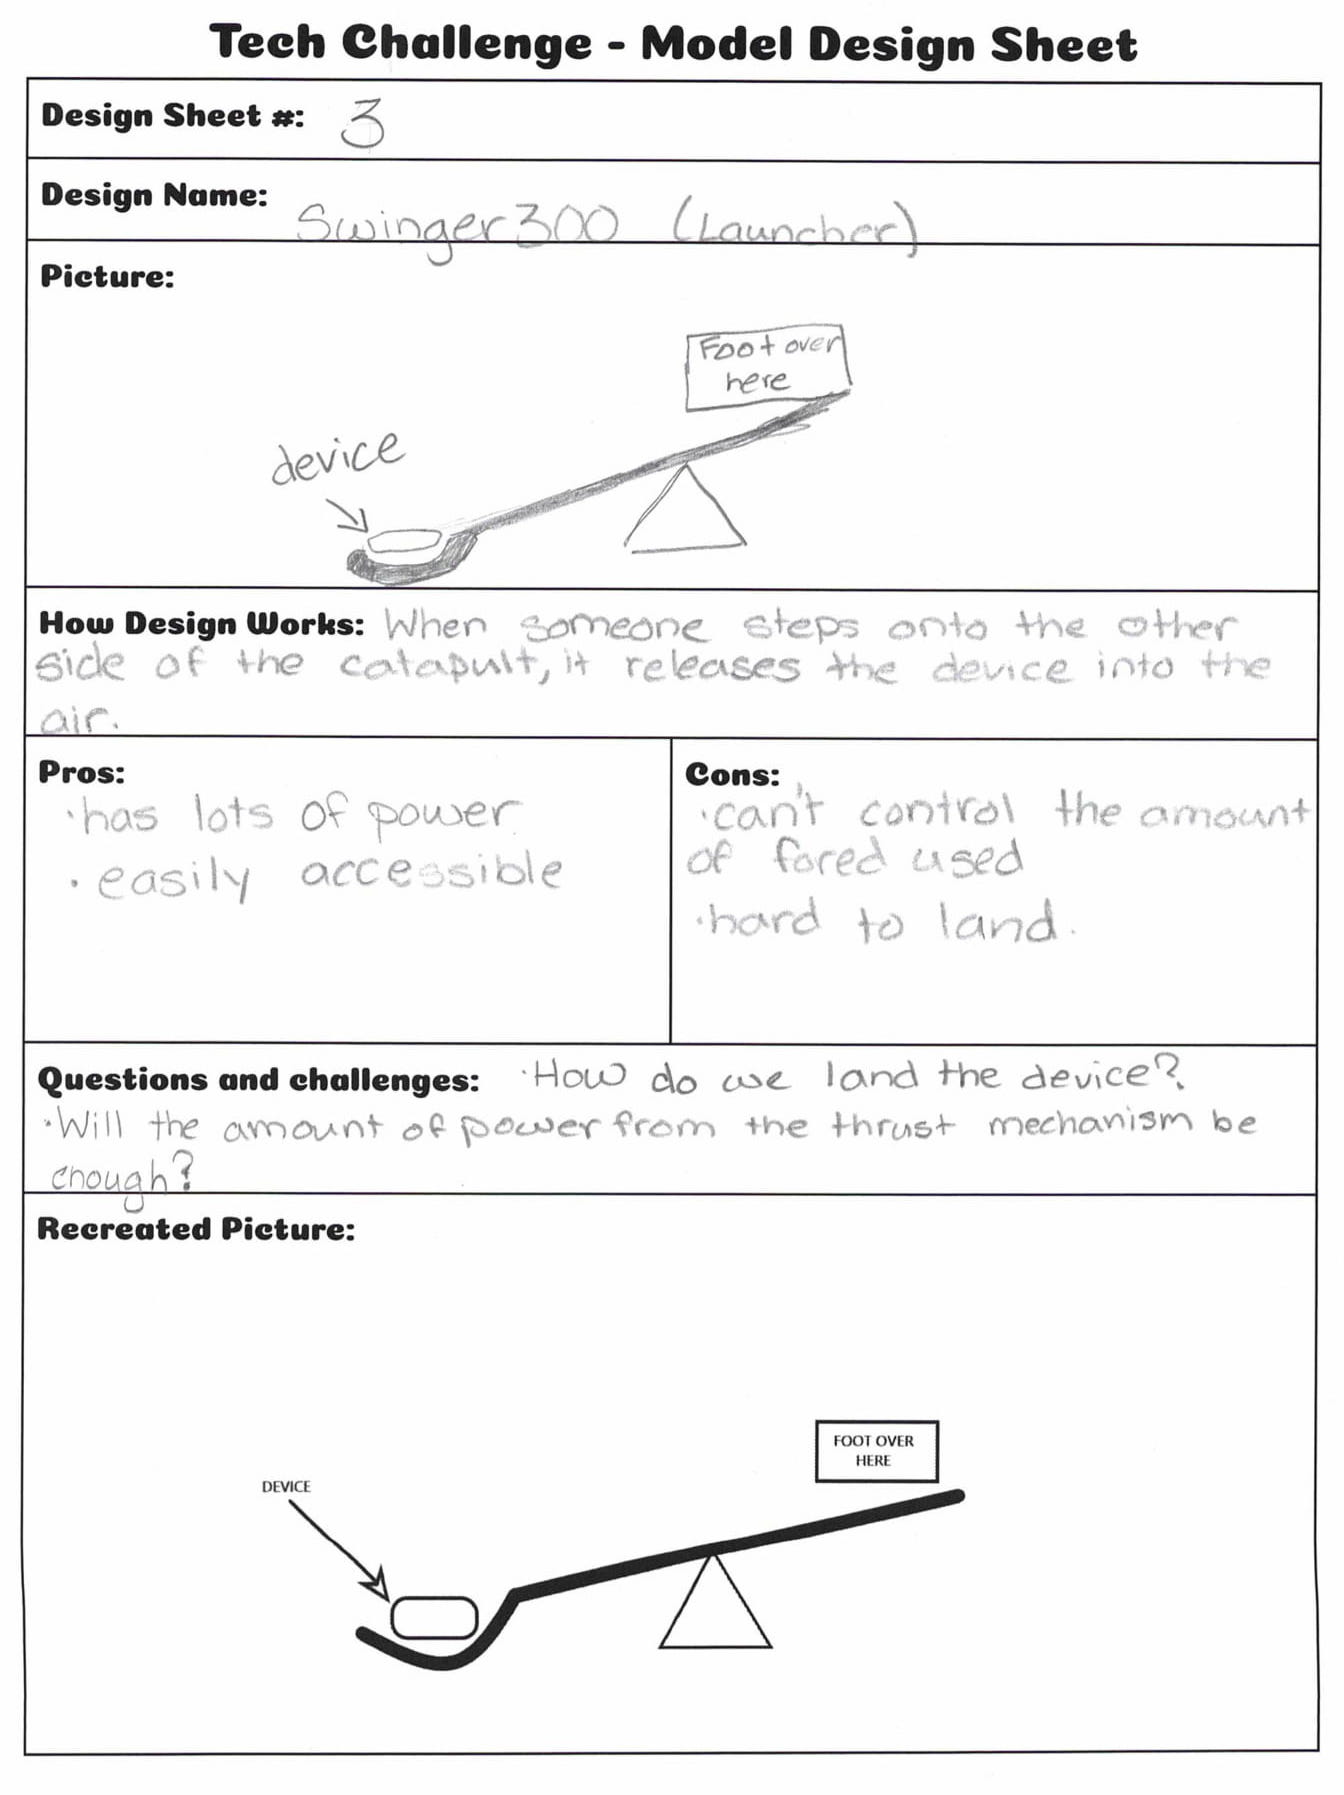 Tech Challenge - Model Design Sheet
Design Sheet #: 3
Design Name: Swinger300 (Launcher)
Picture:
Foot over
here
device
How Design Works: When someone steps onto the other
side of the catapult, it releases the device into the
air.
Pros:
·has lots of power
·easily accessible
Cons:
·can't control the amount
of fored used
·hard to land.
Questions and challenges: ·How do we land the device?
·Will the amount of power from the thrust mechanism be
enough?
Recreated Picture:
FOOT OVER
HERE
DEVICE